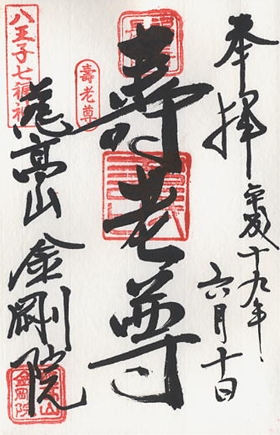 奉拝
平成十九年
六月十日
壽老尊
壽老尊
八王子七福神
慈高山
金剛院
金剛院